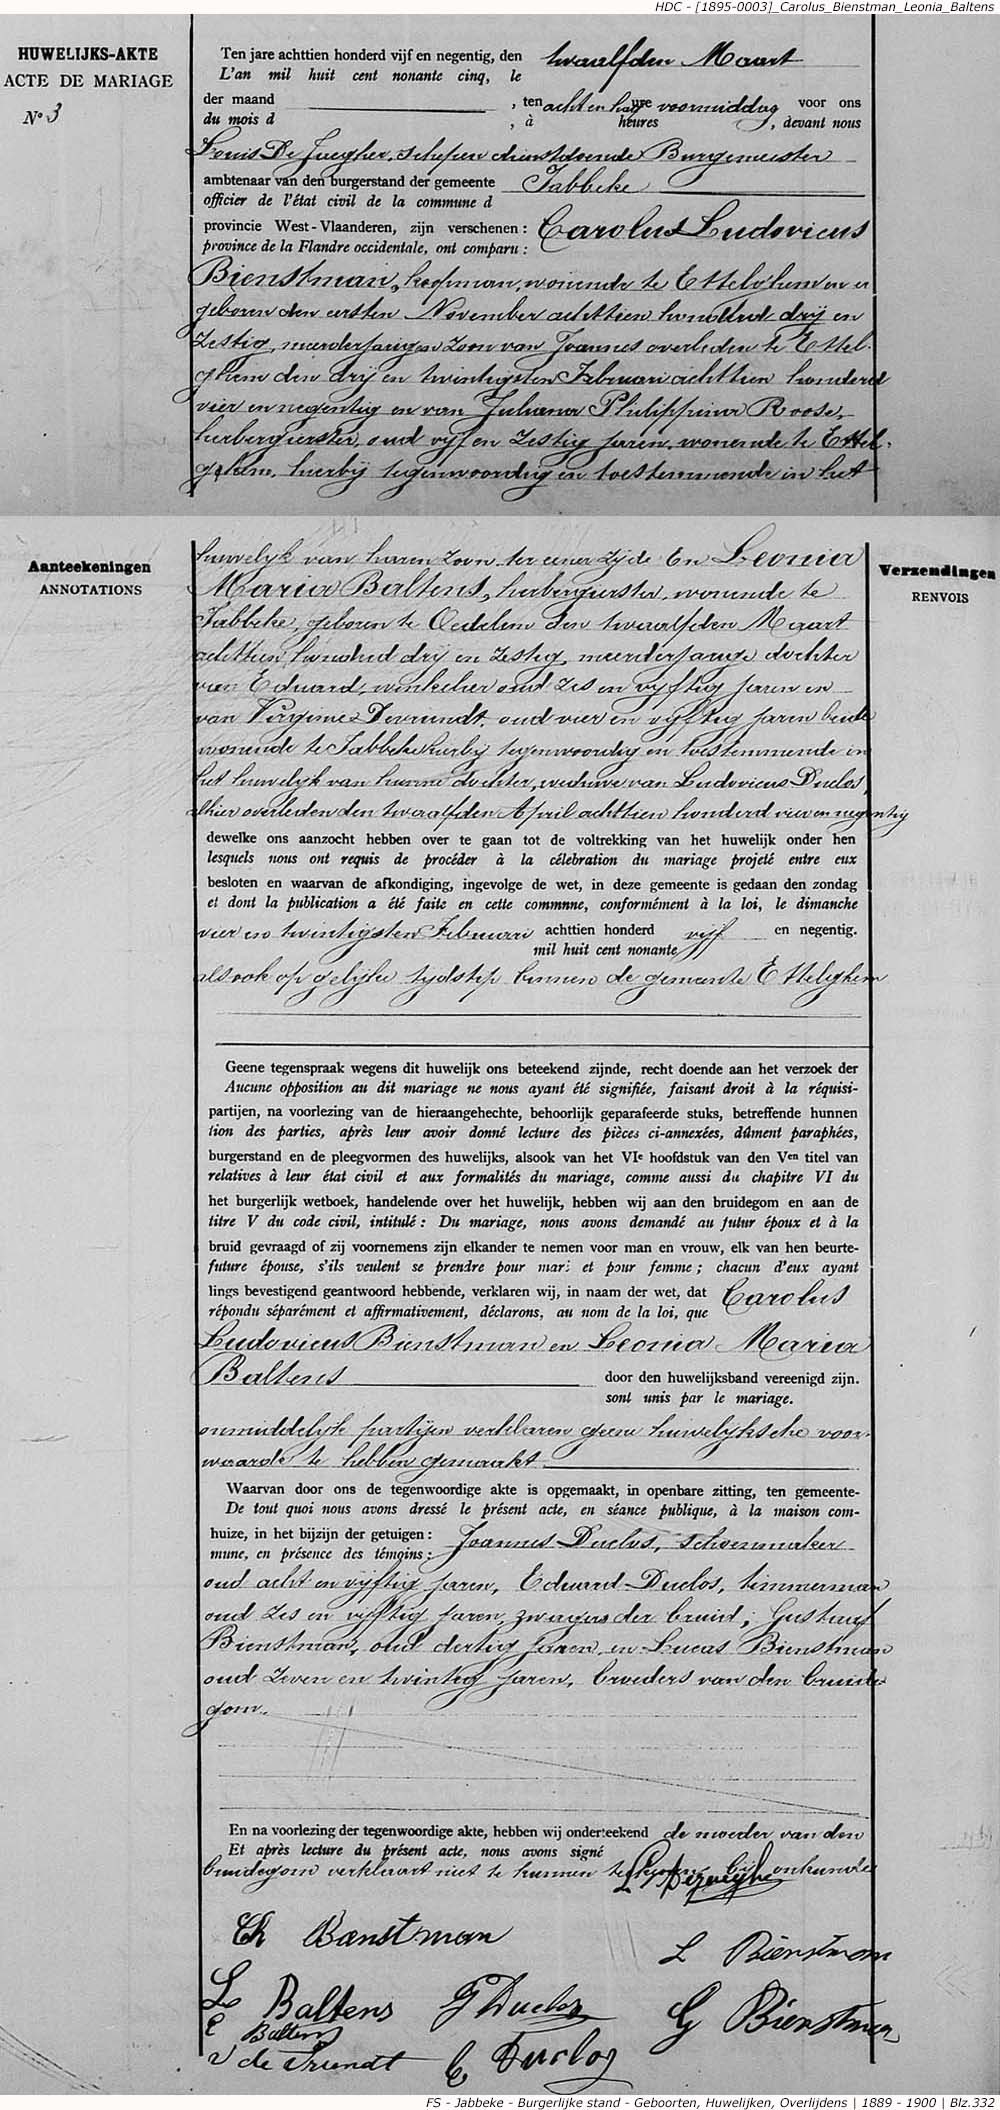 HDC - [1895-0003]_Carolus_Bienstman_Leonia_Baltens
HUWELIJKS-AKTE
ACTE DE MARIAGE
No 3
Ten jare achttien honderd vijf en negentig, den twaalfden Maart
L'an mil huit cent nonante cinq, le
der maand , ten acht en half ure voormiddag voor ons
du mois d , à heures , devant nous
Louis De Jaegher, schepen dienstdoende Burgemeester
ambtenaar van den burgerstand der gemeente Jabbeke
officier de l'état civil de la commune d
provincie West-Vlaanderen, zijn verschenen : Carolus Ludovicus
province de la Flandre occidentale, ont comparu :
Bienstman, koopman, wonende te Ettelghem en er
geboren den eersten November achttien honderd drij en
zestig, meerderjarigen zoon van Joannes overleden te Ettel-
ghem den drij en twintigsten Februari achttien honderd
vier en negentig en van Juliana Philippina Roose,
herbergierster, oud vijf en zestig jaren, wonende te Ettel-
gehem, hierbij tegenwoordig en toestemmende in het
Aanteekeningen
ANNOTATIONS
Verzendingen
RENVOIS
huwelijk van haren zoon ter eener zijde En Leonia
Maria Baltens, herbergierster, wonende te
Jabbeke, geboren te Oedelem den twaalfden Maart
achttien honderd drij en zestig, meerderjarige dochter
van Eduard, winkelier oud zes en vijftig jaren en
van Virginie Devriendt, oud vier en vijftig jaren beide
wonende te Jabbeke hierbij tegenwoordig en toestemmende in
het huwelijk van hunne dochter, weduwe van Ludovicus Duclos,
alhier overleden den twaalfden April achttien honderd vier en negentig
dewelke ons aanzocht hebben over te gaan tot de voltrekking van het huwelijk onder hen
lesquels nous ont requis de procéder à la célébration du mariage projeté entre eux
besloten en waarvan de afkondiging, ingevolge de wet, in deze gemeente is gedaan den zondag
et dont la publication a été faite en cette commnne, conformément à la loi, le dimanche
vier en twintigsten Februari achttien honderd vijf en negentig.
mil huit cent nonante
alsook op gelijke tijdstip binnen de gemeente Ettelghem
Geene tegenspraak wegens dit huwelijk ons beteekend zijnde, recht doende aan het verzoek der
Aucune opposition au dit mariage ne nous ayant été signifiée, faisant droit à la réquisi-
partijen, na voorlezing van de hieraangehechte, behoorlijk geparafeerde stuks, betreffende hunnen
tion des parties, après leur avoir donné lecture des pièces ci-annexées, dûment paraphées,
burgerstand en de pleegvormen des huwelijks, alsook van het VIe hoofdstuk van den Ven titel van
relatives à leur état civil et aux formalités du mariage, comme aussi du chapitre VI du
het burgerlijk wetboek, handelende over het huwelijk, hebben wij aan den bruidegom en aan de
titre V du code civil, intitulé : Du mariage, nous avons demandé au futur époux et à la
bruid gevraagd of zij voornemens zijn elkander te nemen voor man en vrouw, elk van hen beurte-
future épouse, s'ils veulent se prendre pour mari et pour femme ; chacun d'eux ayant
lings bevestigend geantwoord hebbende, verklaren wij, in naam der wet, dat Carolus
répondu séparément et affirmativement, déclarons, au nom de la loi, que
Ludovicus Bienstman en Leonia Maria
Baltens door den huwelijksband vereenigd zijn.
sont unis par le mariage.
onmiddelijk partijen verklaren geene huwelijksche voor-
waarde te hebben gemaakt
Waarvan door ons de tegenwoordige akte is opgemaakt, in openbare zitting, ten gemeente-
De tout quoi nous avons dressé le présent acte, en séance publique, à la maison com-
huize, in het bijzijn der getuigen : Joannes Duclos, schoenmaker
mune, en présence des témoins :
oud acht en vijftig jaren, Eduard Duclos, timmerman
oud zes en vijftig jaren, zwagers der bruid, Gustaaf
Bienstman, oud dertig jaren, en Lucas Bienstman
oud zeven en twintig jaren, broeders van den bruide
gom.
En na voorlezing der tegenwoordige akte, hebben wij onderteekend de moeder van den
Et après lecture du présent acte, nous avons signé
bruidegom verklaart niet te kunnen teekenen bij onkunde
Ch Bienstman
L Bienstman
L Baltens J Duclos G Bienstman
E Baltens
V de Vriendt E Duclos
FS - Jabbeke - Burgerlijke stand - Geboorten, Huwelijken, Overlijdens | 1889 - 1900 | Blz.332